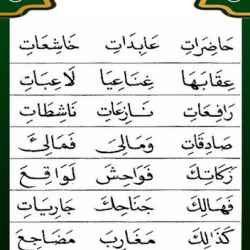 حَاضِرَاتِ عَابِدَاتِ خَاشِعَاتِ
عِقَابَهَا غِنَاعِيَا لَاعِبَاتِ
رَافِعَاتِ نَازِعَاتِ نَاشِطَاتِ
صَادِقَاتِ وَمَالِىَ فَمَالِىَ
زَكَاتِكَ فَوَاحِشَ لَوَاقِعَ
فَهَالِكَ جَنَاحِكَ جَارِيَاتِ
كَذَالِكَ مَغَارِبَ مَضَاجِعَ